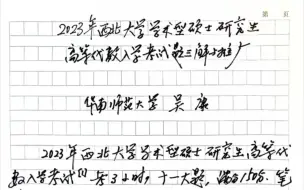 第 页
2023年西北大学学术型硕士研究生
高等代数入学考试题三解与推广
华南师范大学 吴康
2023年西北大学学术型硕士研究生高等代
数入学考试[1]考3小时,十一大题,满分150分.笔